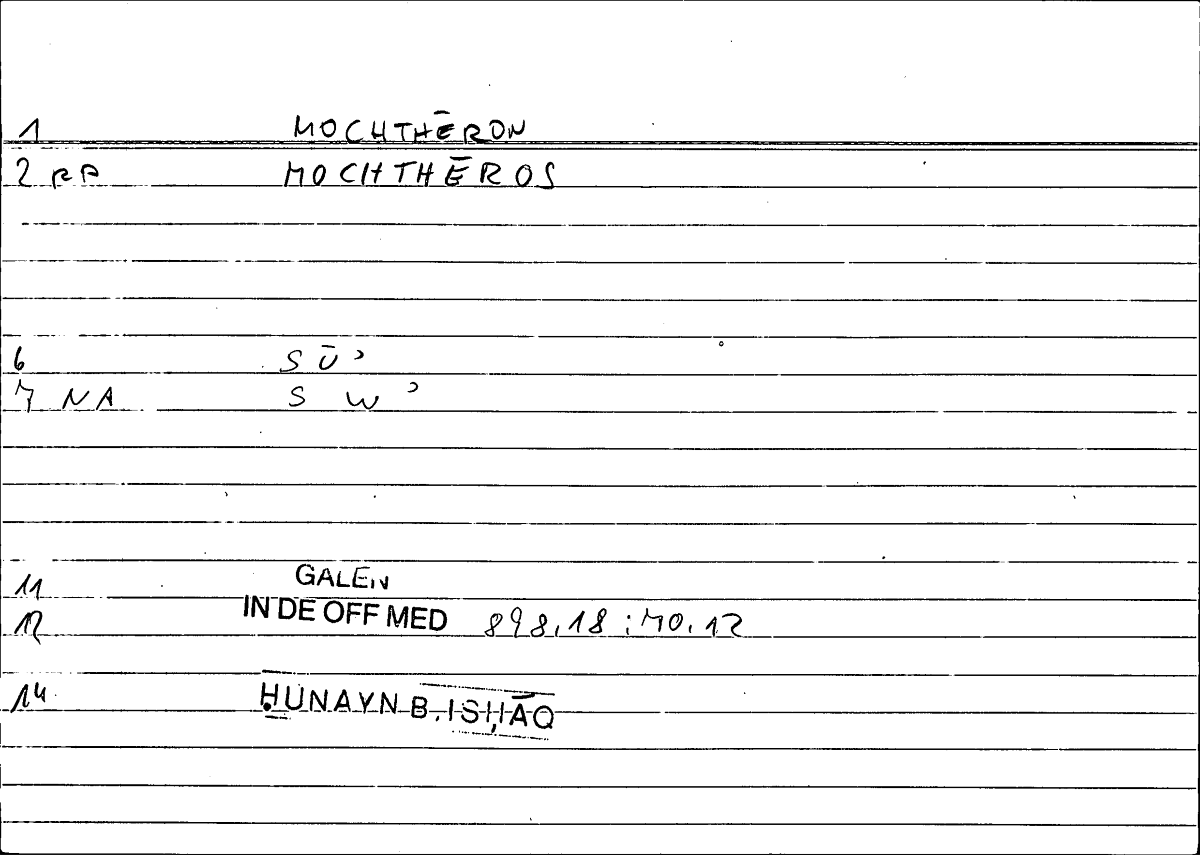 1 MOCHTHĒRON
2 MOCHTHĒROS
6 SŪʾ
7 NA S W ʾ
11 GALEN
12 IN DE OFF MED 898,18 : 70,12
14 ḤUNAYN B. ISḤĀQ